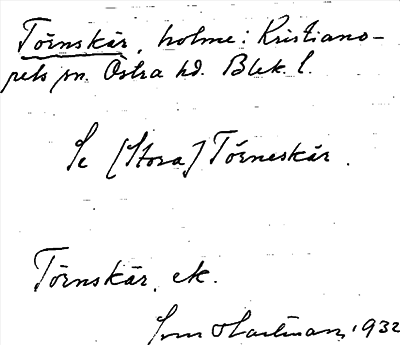 Törnskär, holme: Kristiano-
pels sn. Östra hd. Blek. l.
Se [Stora] Törneskär.
Törnskär, ek.
Hartman, 1932